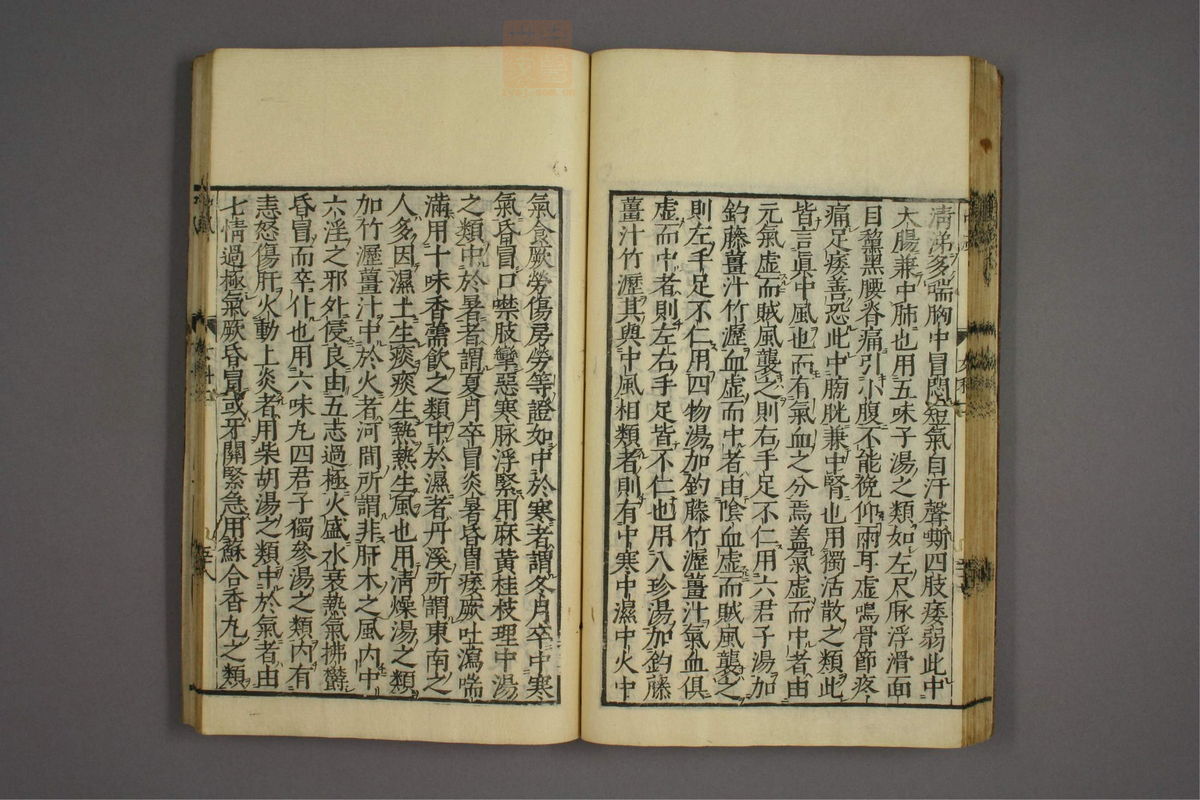 清涕多喘胸中冒悶短氣自汗聲嘶四肢痿弱此中
大腸兼中肺也用五味子湯之類如左尺脉浮滑面
目黧黑腰脊痛引小腹不能俛仰兩耳虛鳴骨節疼
痛足痿善恐此中膀胱兼中腎也用獨活散之類此
皆言眞中風也而有氣血之分焉蓋氣虛而中者由
元氣虛而賊風襲之則右手足不仁用六君子湯加
釣藤薑汁竹瀝血虛而中者由陰血虛而賊風襲之
則左手足不仁用四物湯加釣藤竹瀝薑汁氣血俱
虛而中者則左右手足皆不仁也用八珍湯加釣藤
薑汁竹瀝其與中風相類者則有中寒中濕中火中
氣食厥勞傷房勞等證如中於寒者謂冬月卒中寒
氣昏冒口噤肢攣惡寒脉浮緊用麻黃桂枝理中湯
之類中於暑者謂夏月卒冒炎暑昏冒痿厥吐瀉喘
滿用十味香薷飲之類中於濕者丹溪所謂東南之
人多因濕土生痰痰生熱熱生風也用清燥湯之類
加竹瀝薑汁中於火者河間所謂非肝木之風內中
六淫之邪外侵良由五志過極火盛水衰熱氣拂欝
昏冒而卒仆也用六味丸四君子獨參湯之類內有
恚怒傷肝火動上炎者用柴胡湯之類中於氣者由
七情過極氣厥昏冒或牙關緊急用蘇合香丸之類